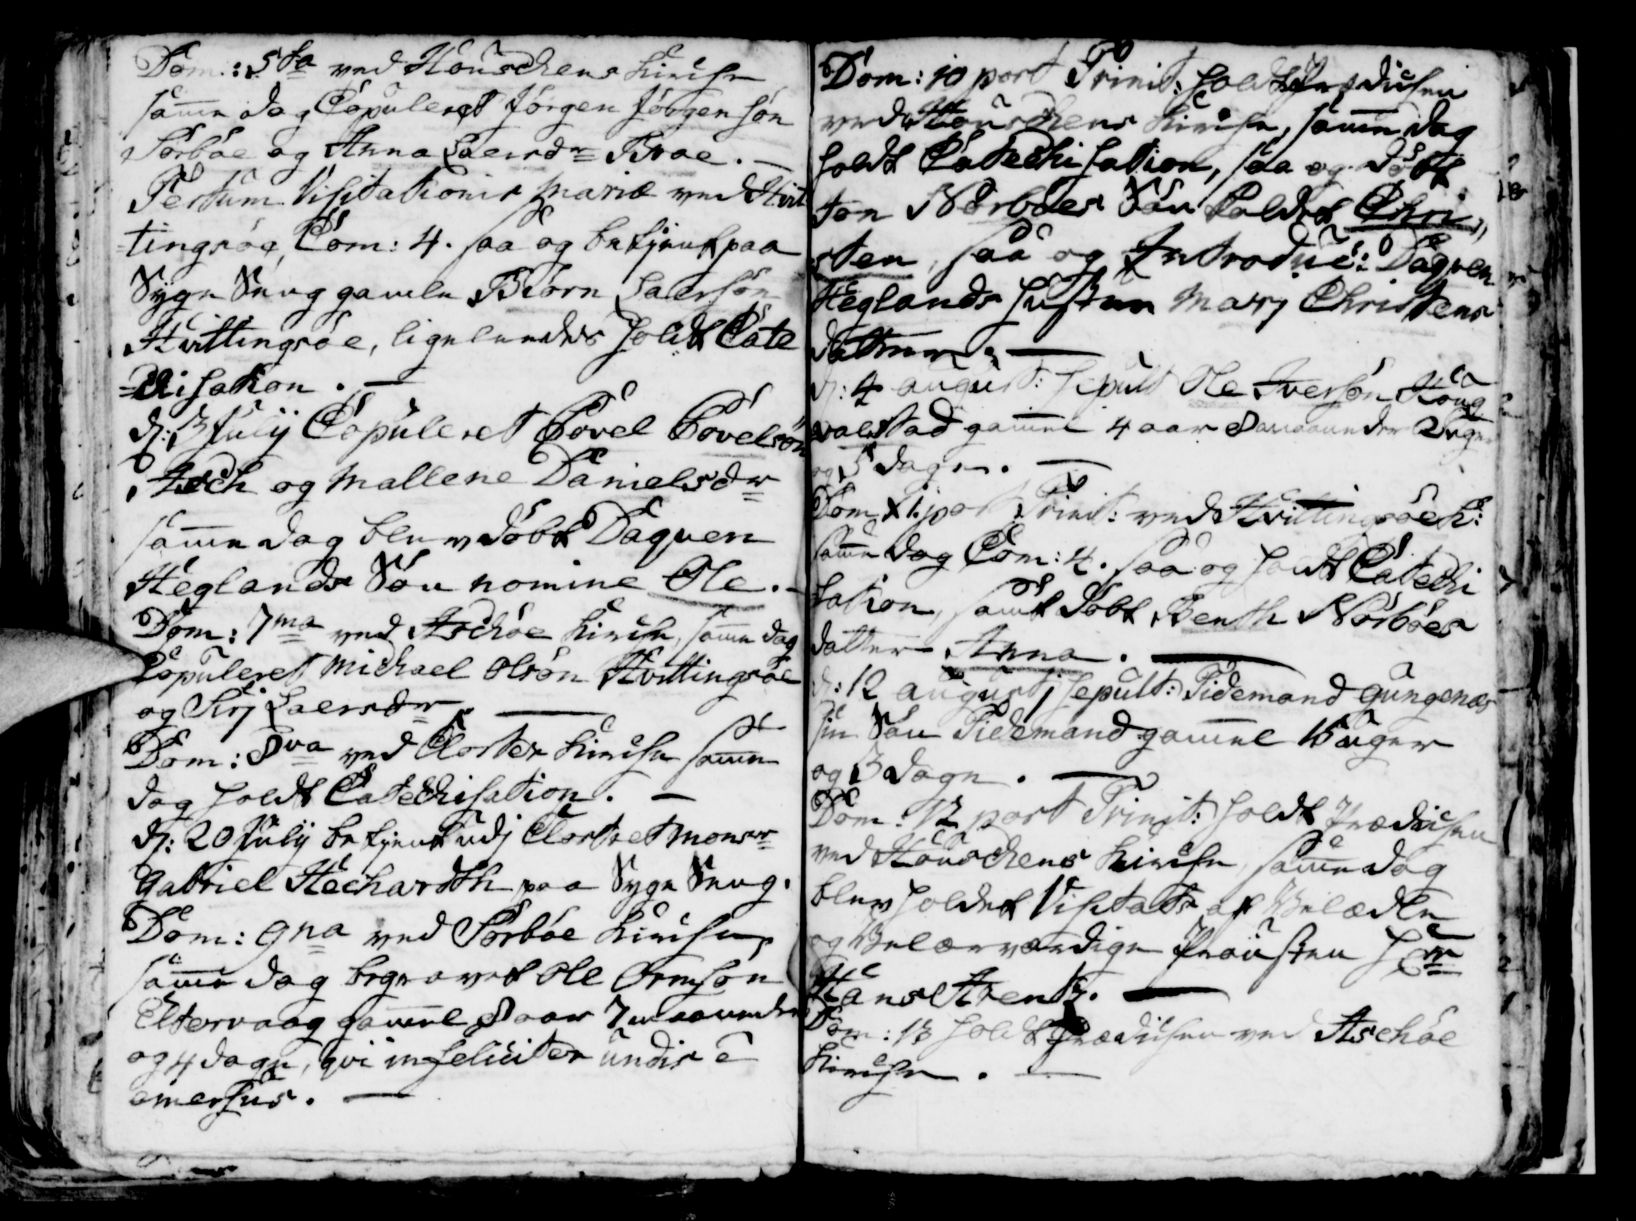 Dom: 5ta ved Houschens Kirche
samme dag Copuleret Jörgen Jörgensön
Sörböe og Anna Laersdr Broe. —
Festum Visitationis Mariæ ved Hvit
tingsöe, Com: 4. saa og betjent paa
Syge Seng gamle Biörn Laersön
Hvittingsöe, ligeleedes holdt Cate
chisation. —
d: 3 Julij Copuleret Povel Povelsön
Asch og Mallene Danielsdr
samme dag blev döbt Daguen
Heglands Sön nomine Ole. —
Dom: 7ma ved Aschöe Kirche, samme dag
Copuleret Michael Olsön Hvittingsöe
og Sirj Laersdr. —
Dom: 8va ved Closter Kirche samme
dag holdt Catechisation. —
d: 20 Julij betjent udj Closteret Monsr
Gabriel Hechardth paa Syge Seng.
Dom: 9na ved Sörböe Kirche,
samme dag begravet Ole Ormsön
Eltervaag gammel 8 aar 7 maaneder
og 4 dage, qvi infeliciter undis è
emersus. —
Dom: 10 post Trinit: holdt Prædichen
ved Houschens Kirche, samme dag
holdt Catechisation, saa og döbt
ten Nörböes Sön kaldet Chri
sten, saa og Introduc: Daguen
Heglands hustrue Marj Christens
datter. —
d: 4 August: sepult Ole Iversön Houg
valstad gammel 4 aar 8 maaneder 2 uger
og 5 dage. —
Dom XI post Trinit: ved Hvittingsöe K:
samme dag Com: 4. saa og holdt Catechi
sation, samt döbt Benth Nörböes
datter Anna. —
d: 12 Augustj sepult: Tidemand Gungenæs
sin Sön Tidemand gammel 15 uger
og 3 dage. —
Dom: 12 post Trinit: holdt Prædichen
ved Houschens Kirche, samme dag
blev holdet Visitats af Velædle
og Velærværdige Prousten Hr
Hans Arentz. —
Dom: 13 holdt Prædichen ved Aschöe
Kirche. —